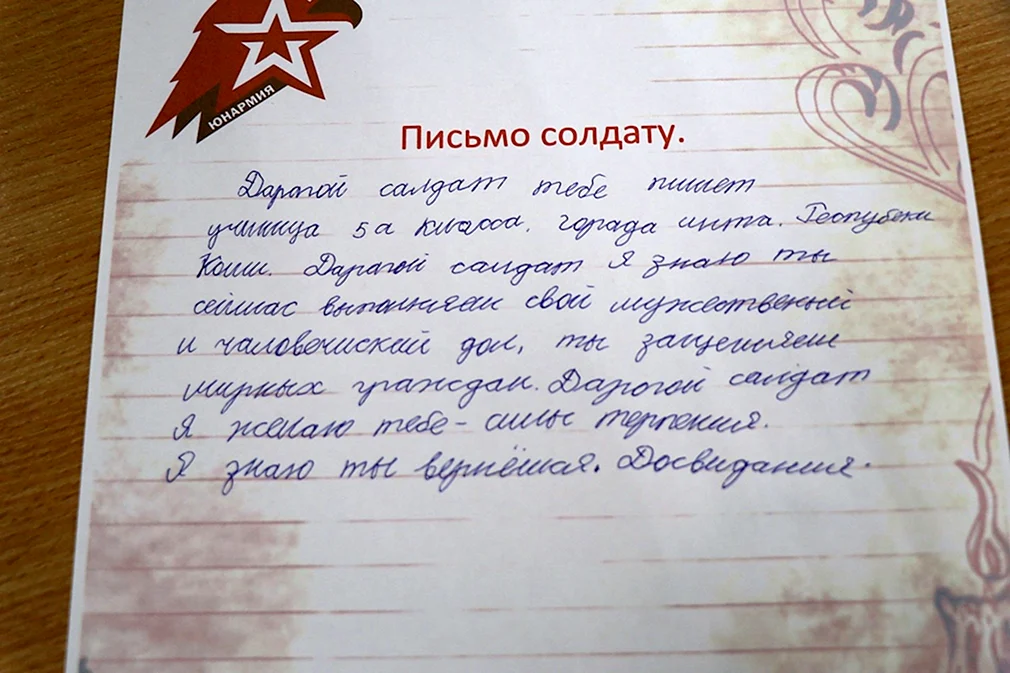 ЮНАРМИЯ
Письмо солдату.
Дарагой салдат тебе пишет
учиница 5а класса. горада инта. Республеки
Коми. Дарагой салдат Я знаю ты
сейчас выполняеш свой мужественый
и чаловечиский дол, ты защещяеш
мирных граждан. Дарогой салдат
Я желаю тебе - силы терпения.
Я знаю ты вернёшся. Досвидания.